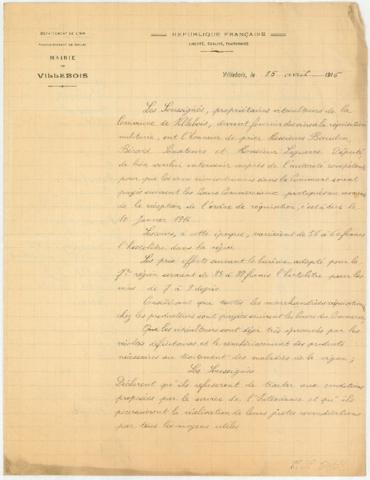 DEPARTEMENT DE L'AIN
ARRONDISSEMENT DE BELLEY
MAIRIE
DE
VILLEBOIS
REPUBLIQUE FRANÇAISE
LIBERTÉ, ÉGALITÉ, FRATERNITÉ
Villebois, le 25 avril 1916
Les Soussignés, propriétaires viticulteurs de la
Commune de Villebois, devant fournir du vin à la réquisition
militaire, ont l'honneur de prier Messieurs
Bérard, Sénateurs et Monsieur Député
de bien vouloir intervenir auprès de l'autorité compétente
pour que les vins réquisitionnés dans la Commune soient
payés suivant les cours Commerciaux pratiqués au moment
de la réception de l'ordre de réquisition, c'est à dire le
10 Janvier 1916.
Les cours, à cette époque, variaient de 55 à 60 francs
l'hectolitre dans la région
Les prix offerts suivant le barème adopté pour la
7e région seraient de francs l'hectolitre pour les
vins de 7 à 9 degrés.
Considérant que toutes les marchandises réquisitionnées
chez les producteurs sont payées suivant les cours du Commerce
Que les viticulteurs sont déjà très éprouvés par les
récoltes déficitaires et le renchérissement des produits
nécessaires au traitement des maladies de la vigne ;
Les Soussignés
Déclarent qu'ils refuseront de traiter aux conditions
proposées par le service de l'Intendance et qu'ils
poursuivront la réalisation de leurs justes revendications
par tous les moyens utiles